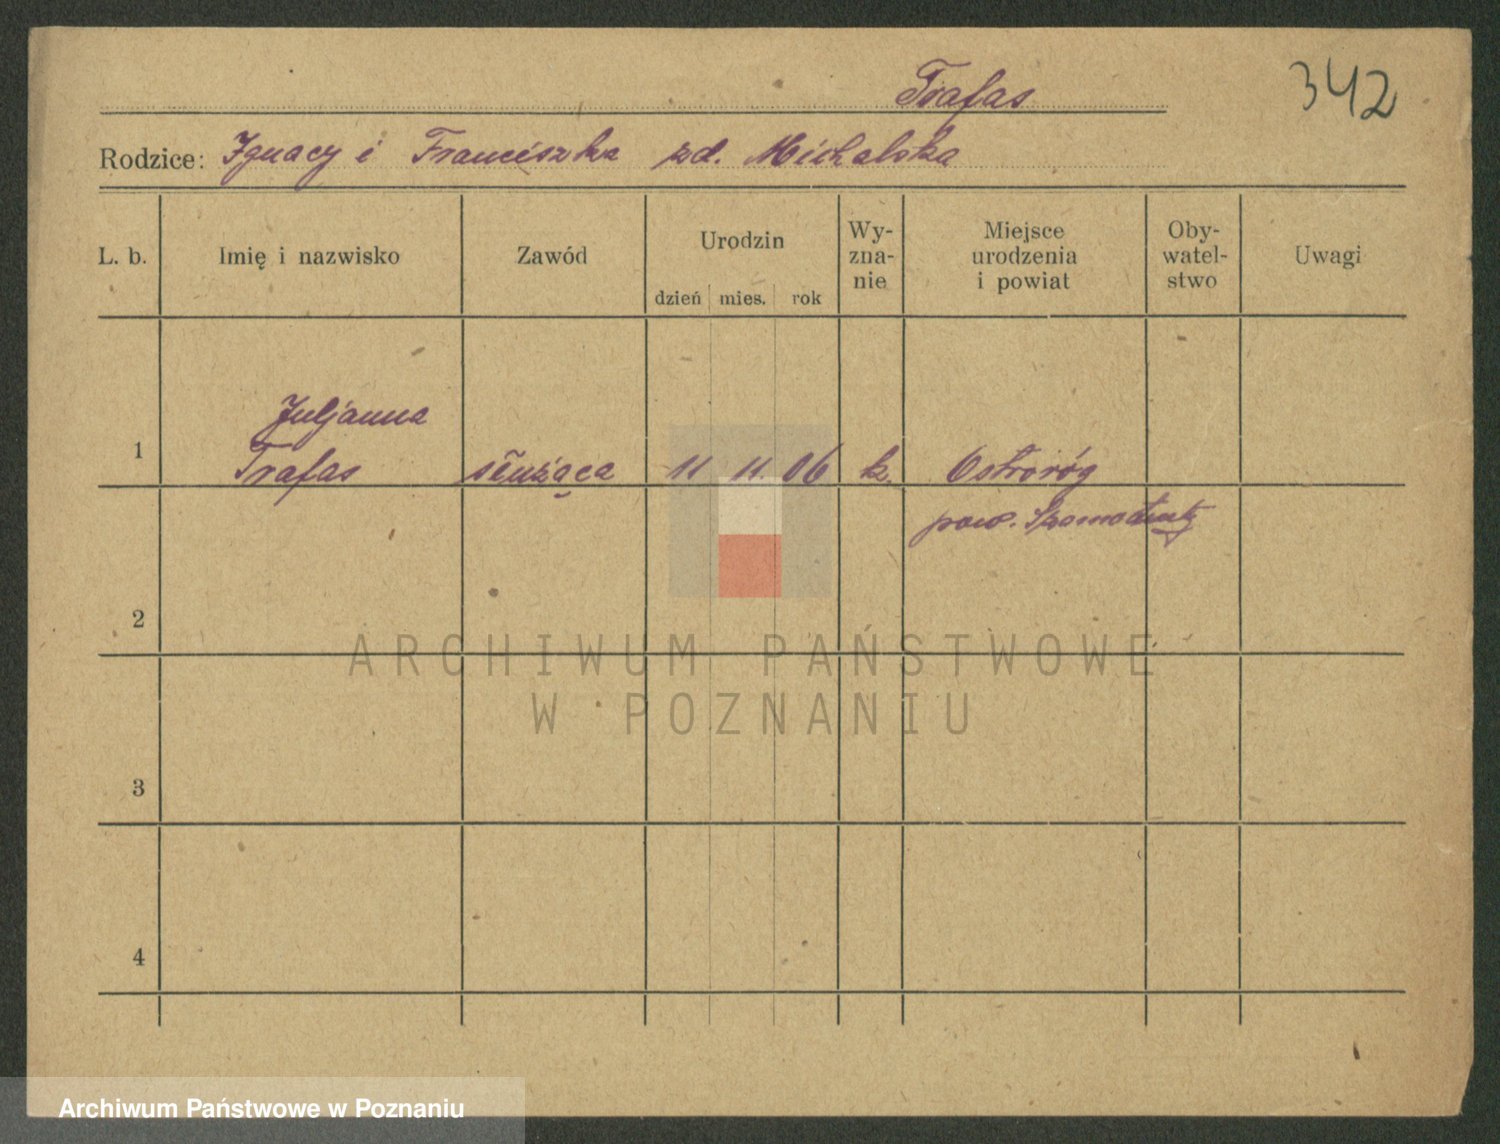 Trafas
342
Rodzice: Ignacy i Franciszka zd. Michalska
L. b.
Imię i nazwisko
Zawód
Urodzin
dzień mies. rok
Wy-
zna-
nie
Miejsce
urodzenia
i powiat
Oby-
watel-
stwo
Uwagi
1
Juljanna
Trafas
służąca
11 11. 06
k.
Ostroróg
pow. Szamotuły
2
3
4
ARCHIWUM PAŃSTWOWE
W POZNANIU
Archiwum Państwowe w Poznaniu